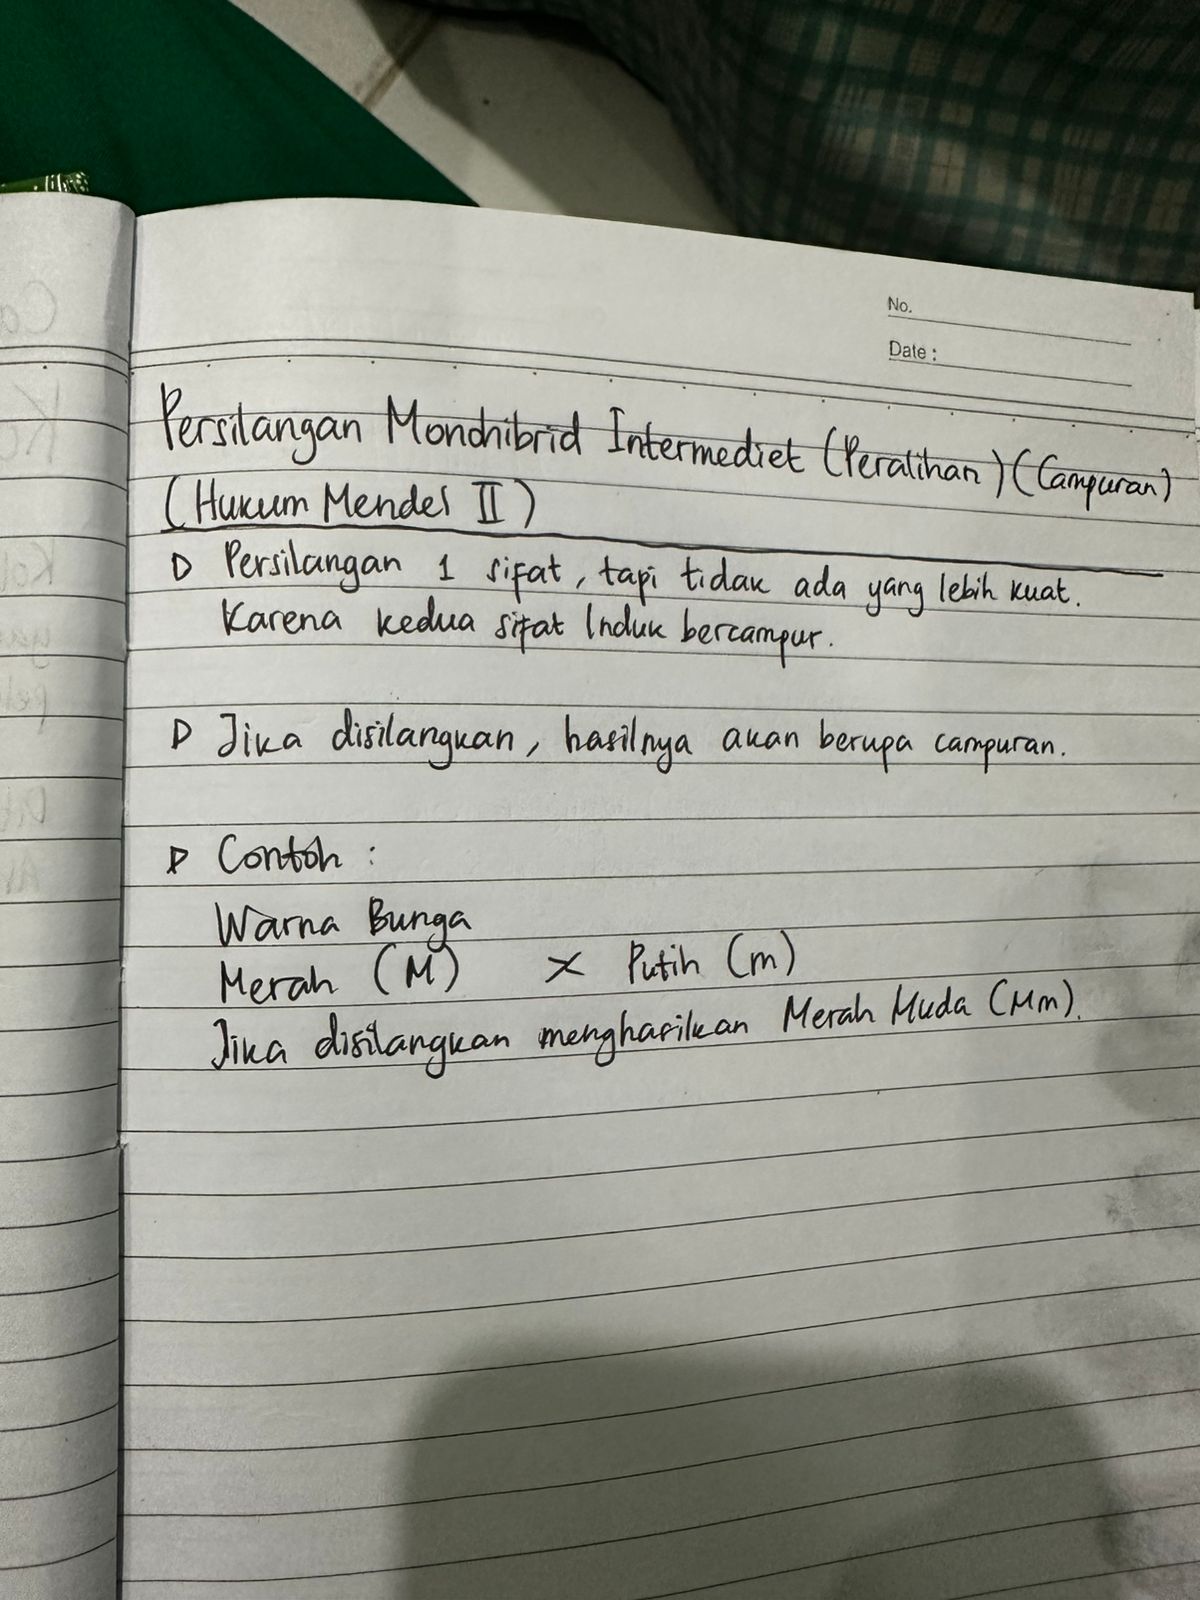 No.
Date :
Persilangan Monohibrid Intermediet (Peralihan) (Campuran)
(Hukum Mendel II)
Persilangan 1 sifat, tapi tidak ada yang lebih kuat.
Karena kedua sifat Induk bercampur.
Jika disilangkan, hasilnya akan berupa campuran.
Contoh :
Warna Bunga
Merah (M) × Putih (m)
Jika disilangkan menghasilkan Merah Muda (Mm).